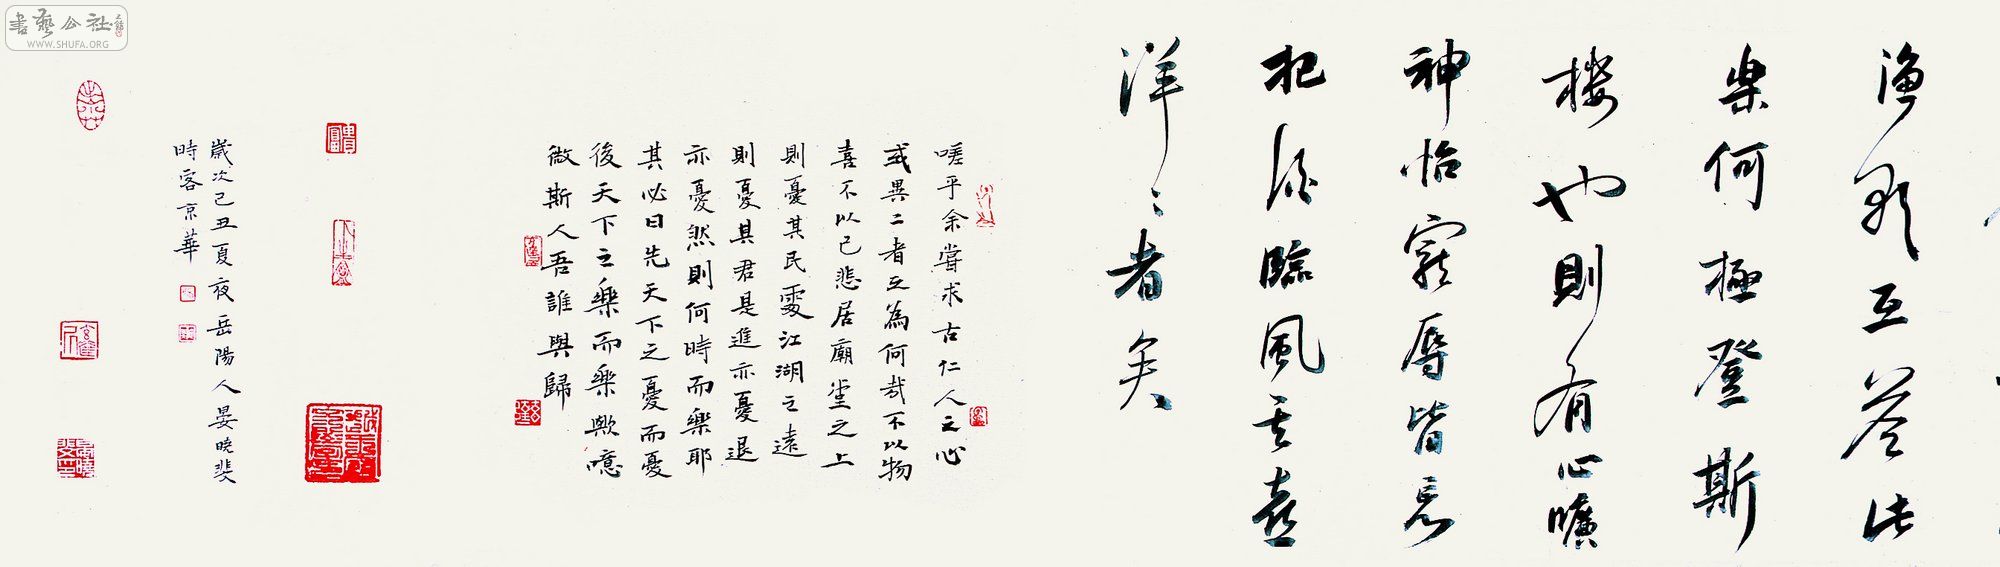 書藝公社
WWW.SHUFA.ORG
漁歌互答此
樂何極登斯
樓也則有心曠
神怡寵辱皆忘
把酒臨風其喜
洋〻者矣
嗟乎余嘗求古仁人之心
或異二者之為何哉不以物
喜不以己悲居廟堂之上
則憂其民處江湖之遠
則憂其君是進亦憂退
亦憂然則何時而樂耶
其必曰先天下之憂而憂
後天下之樂而樂歟噫
微斯人吾誰與歸
歲次己丑夏夜岳陽人晏曉斐
時客京華